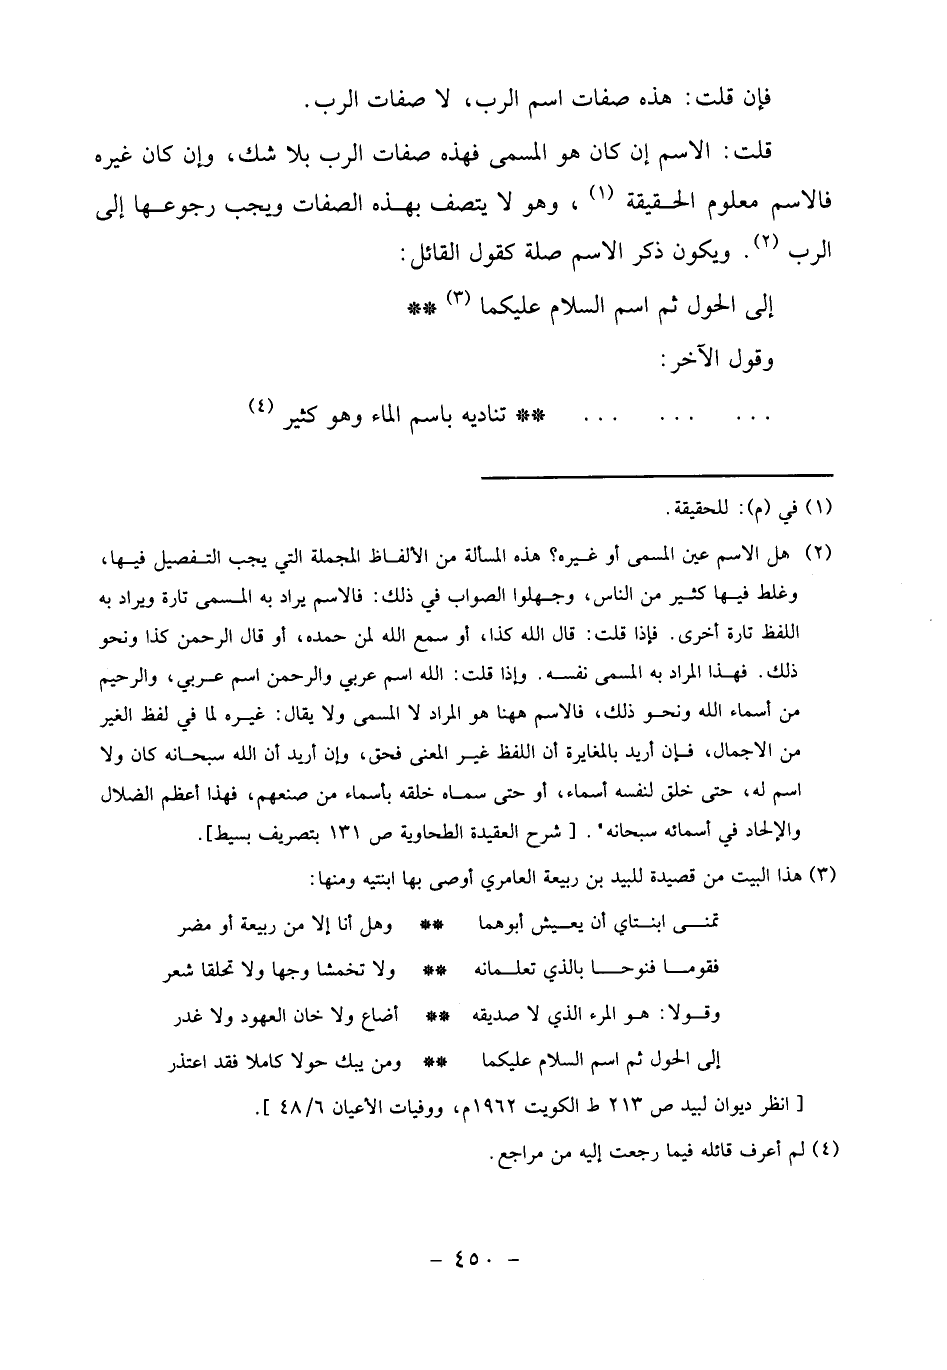 فإن قلت: هذه صفات اسم الرب، لا صفات الرب.
قلت: الاسم إن كان هو المسمى فهذه صفات الرب بلا شك، وإن كان غيره
فالاسم معلوم الحقيقة (١) ، وهو لا يتصف بهذه الصفات ويجب رجوعها إلى
الرب (٢). ويكون ذكر الاسم صلة كقول القائل:
إلى الحول ثم اسم السلام عليكما (٣) **
وقول الآخر:
... ... ... ** تناديه باسم الماء وهو كثير (٤)
(١) في (م): للحقيقة.
(٢) هل الاسم عين المسمى أو غيره؟ هذه المسألة من الألفاظ المجملة التي يجب التفصيل فيها،
وغلط فيها كثير من الناس، وجهلوا الصواب في ذلك: فالاسم يراد به المسمى تارة ويراد به
اللفظ تارة أخرى. فإذا قلت: قال الله كذا، أو سمع الله لمن حمده، أو قال الرحمن كذا ونحو
ذلك. فهذا المراد به المسمى نفسه. وإذا قلت: الله اسم عربي والرحمن اسم عربي، والرحيم
من أسماء الله ونحو ذلك، فالاسم ههنا هو المراد لا المسمى ولا يقال: غيره لما في لفظ الغير
من الاجمال، فإن أريد بالمغايرة أن اللفظ غير المعنى فحق، وإن أريد أن الله سبحانه كان ولا
اسم له، حتى خلق لنفسه أسماء، أو حتى سماه خلقه بأسماء من صنعهم، فهذا أعظم الضلال
والإلحاد في أسمائه سبحانه" . [ شرح العقيدة الطحاوية ص ١٣١ بتصريف بسيط].
(٣) هذا البيت من قصيدة للبيد بن ربيعة العامري أوصى بها ابنتيه ومنها:
تمنى ابنتاي أن يعيش أبوهما ** وهل أنا إلا من ربيعة أو مضر
فقوما فنوحا بالذي تعلمانه ** ولا تخمشا وجها ولا تحلقا شعر
وقولا: هو المرء الذي لا صديقه ** أضاع ولا خان العهود ولا غدر
إلى الحول ثم اسم السلام عليكما ** ومن يبك حولا كاملا فقد اعتذر
[ انظر ديوان لبيد ص ٢١٣ ط الكويت ١٩٦٢م، ووفيات الأعيان ٤٨/٦ ].
(٤) لم أعرف قائله فيما رجعت إليه من مراجع.
- ٤٥٠ -